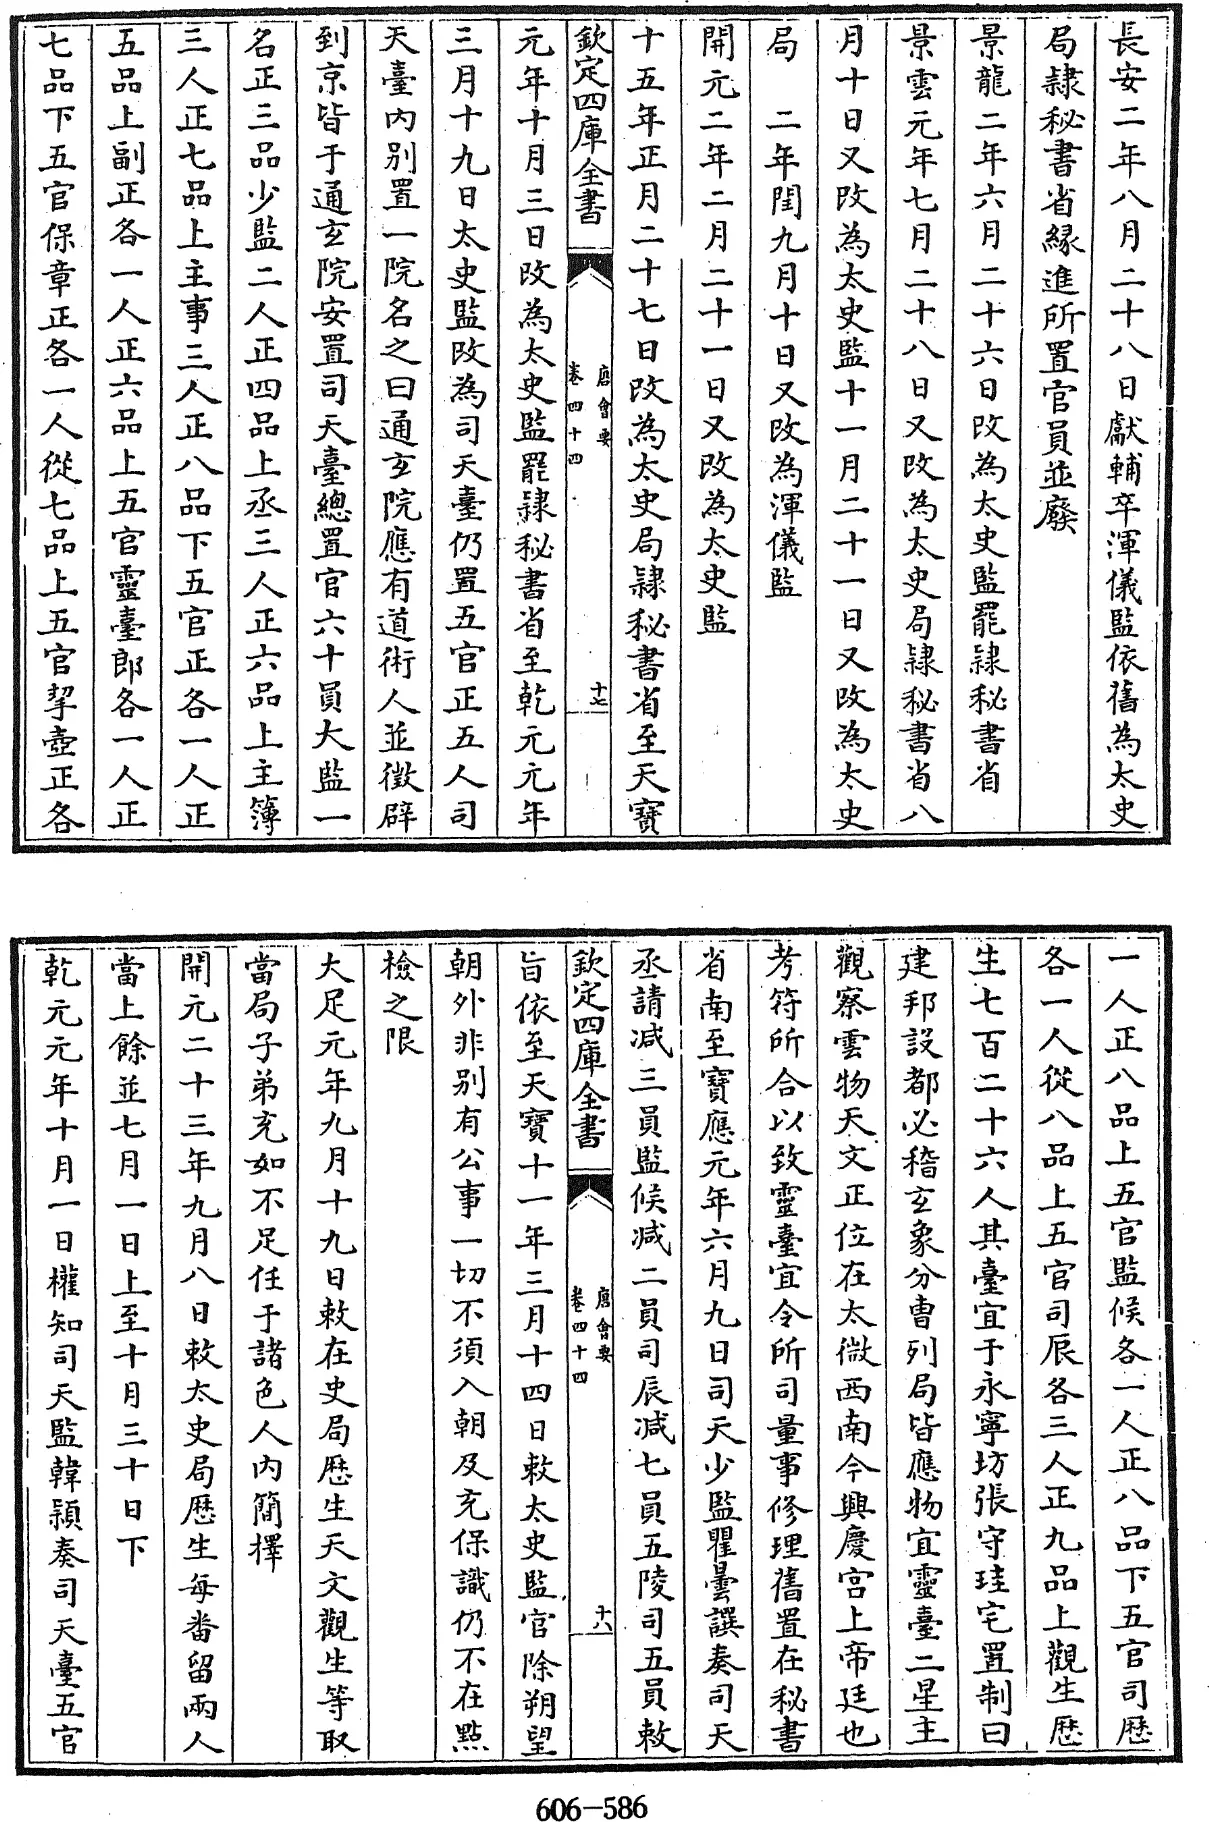 長安二年八月二十八日獻輔卒渾儀監依舊為太史
局隷秘書省緣進所置官員並廢
景龍二年六月二十六日改為太史監罷隷秘書省
景雲元年七月二十八日又改為太史局隷秘書省八
月十日又改為太史監十一月二十一日又改為太史
局　二年閏九月十日又改為渾儀監
開元二年二月二十一日又改為太史監
十五年正月二十七日改為太史局隷秘書省至天寶
欽定四庫全書
唐會要
卷四十四
十七
元年十月三日改為太史監罷隷秘書省至乾元元年
三月十九日太史監改為司天臺仍置五官正五人司
天臺內别置一院名之曰通玄院應有道術人並徵辟
到京皆于通玄院安置司天臺總置官六十員大監一
名正三品少監二人正四品上丞三人正六品上主簿
三人正七品上主事三人正八品下五官正各一人正
五品上副正各一人正六品上五官靈臺郎各一人正
七品下五官保章正各一人從七品上五官挈壺正各
一人正八品上五官監候各一人正八品下五官司厯
各一人從八品上五官司辰各三人正九品上觀生厯
生七百二十六人其臺宜于永寧坊張守珪宅置制曰
建邦設都必稽玄象分曹列局皆應物宜靈臺二星主
觀察雲物天文正位在太微西南今興慶宫上帝廷也
考符所合以致靈臺宜令所司量事修理舊置在秘書
省南至寶應元年六月九日司天少監瞿曇譔奏司天
丞請減三員監候減二員司辰減七員五陵司五員敕
欽定四庫全書
唐會要
卷四十四
十八
旨依至天寶十一年三月十四日敕太史監官除朔望
朝外非别有公事一切不須入朝及充保識仍不在㸃
檢之限
大足元年九月十九日敕在史局厯生天文觀生等取
當局子弟充如不足任于諸色人內簡擇
開元二十三年九月八日敕太史局厯生每畨留兩人
當上餘並七月一日上至十月三十日下
乾元元年十月一日權知司天監韓頴奏司天臺五官
606-586